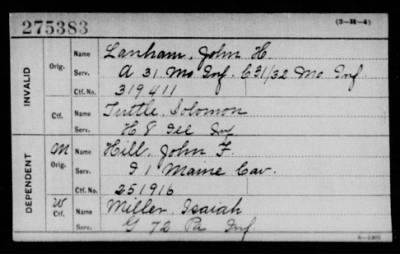 275383 (3-M-4)
INVALID
Orig. Name Lanham, John H.
Serv. A 31 Mo Inf. C 31/32 Mo Inf.
Ctf. No. 319411
Ctf. Name Tuttle, Solomon
Serv. H 8 Ill Inf
DEPENDENT
M Orig. Name Hill, John F.
Serv. I 1 Maine Cav.
Ctf. No. 251916
W Ctf. Name Miller, Isaiah
Serv. G 72 Pa Inf